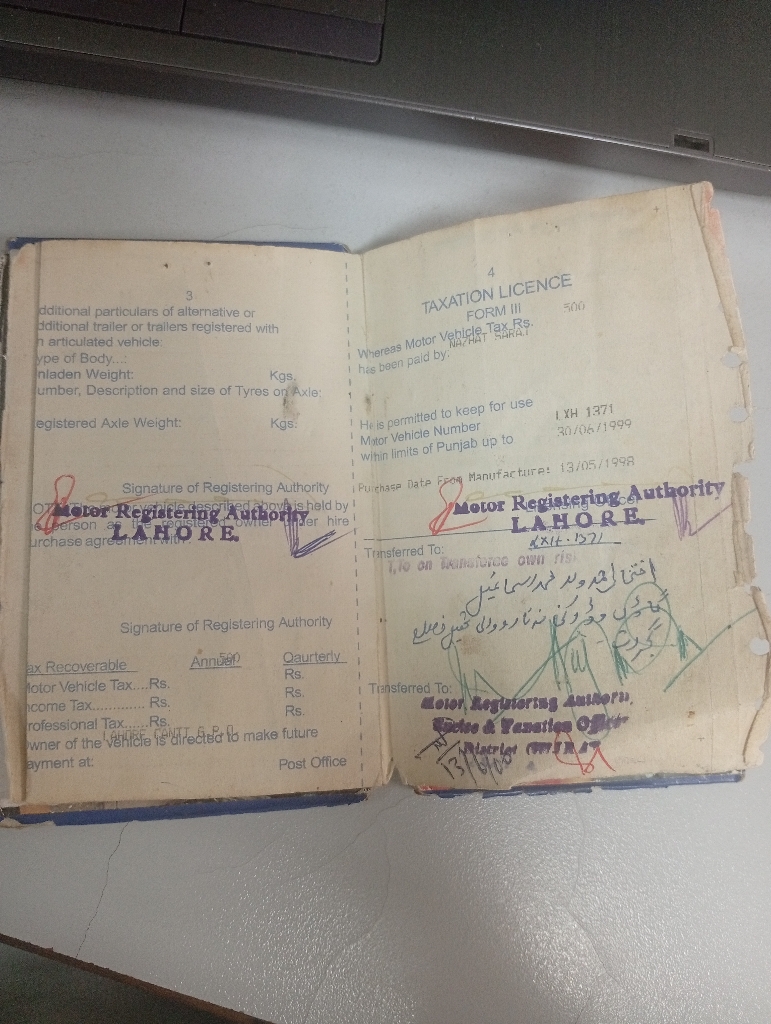 3
dditional particulars of alternative or
dditional trailer or trailers registered with
n articulated vehicle:
ype of Body...:
nladen Weight: Kgs.
umber, Description and size of Tyres on Axle:
egistered Axle Weight: Kgs.
Signature of Registering Authority
vehicle described above is held by
e person as the registered owner under hire
urchase agreement with:
Motor Registering Authority
LAHORE.
Signature of Registering Authority
ax Recoverable Annual Qaurterly
500
Motor Vehicle Tax....Rs. Rs.
ncome Tax.............Rs. Rs.
rofessional Tax......Rs. Rs.
LAHORE CANTT G.P.O
wner of the vehicle is directed to make future
ayment at: Post Office
4
TAXATION LICENCE
FORM III
Whereas Motor Vehicle Tax Rs. 500
has been paid by: NAZHAT
He is permitted to keep for use
Motor Vehicle Number LXH 1371
within limits of Punjab up to 30/06/1999
Purchase Date From Manufacture: 13/05/1998
Motor Registering Authority
LAHORE.
LXH-1371
Transferred To:
T,To on Transferee own ris
ولد محمد اسماعیل
گجرات
Transferred To:
Motor Registering Authori
Excise & Taxation Office
District GUJRAT